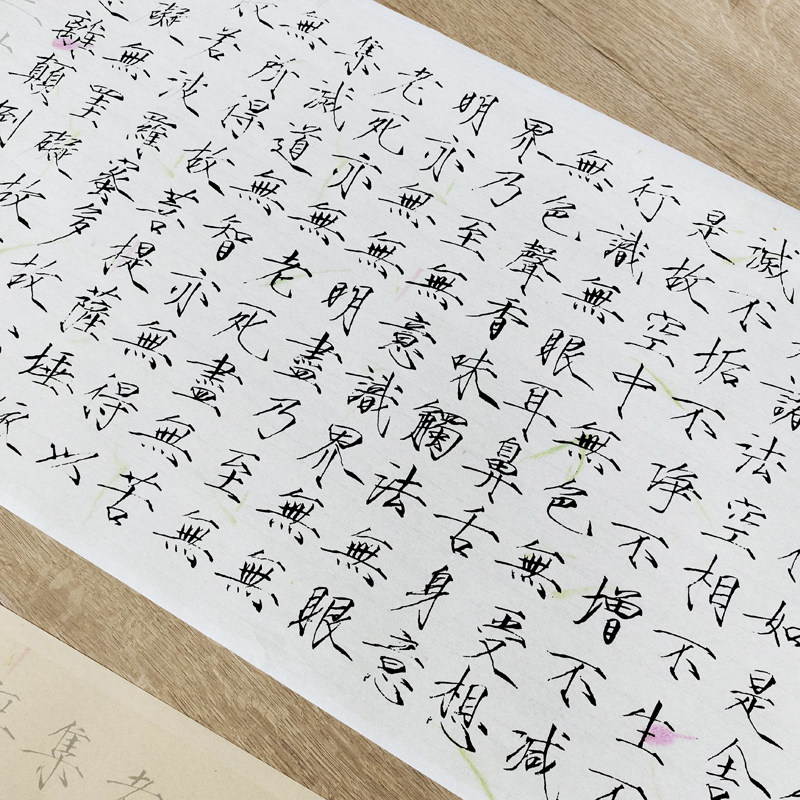 如是舍
諸法空相不生不
滅不垢不淨不增不減
是故空中無色無受想
行識無眼耳鼻舌身意
無色聲香味觸法無眼
界乃至無意識界無無
明亦無無明盡乃至無
老死亦無老死盡無苦
集滅道無智亦無得以
無所得故菩提薩埵依
般若波羅蜜多故
礙無罣礙故
離顛倒
老
集